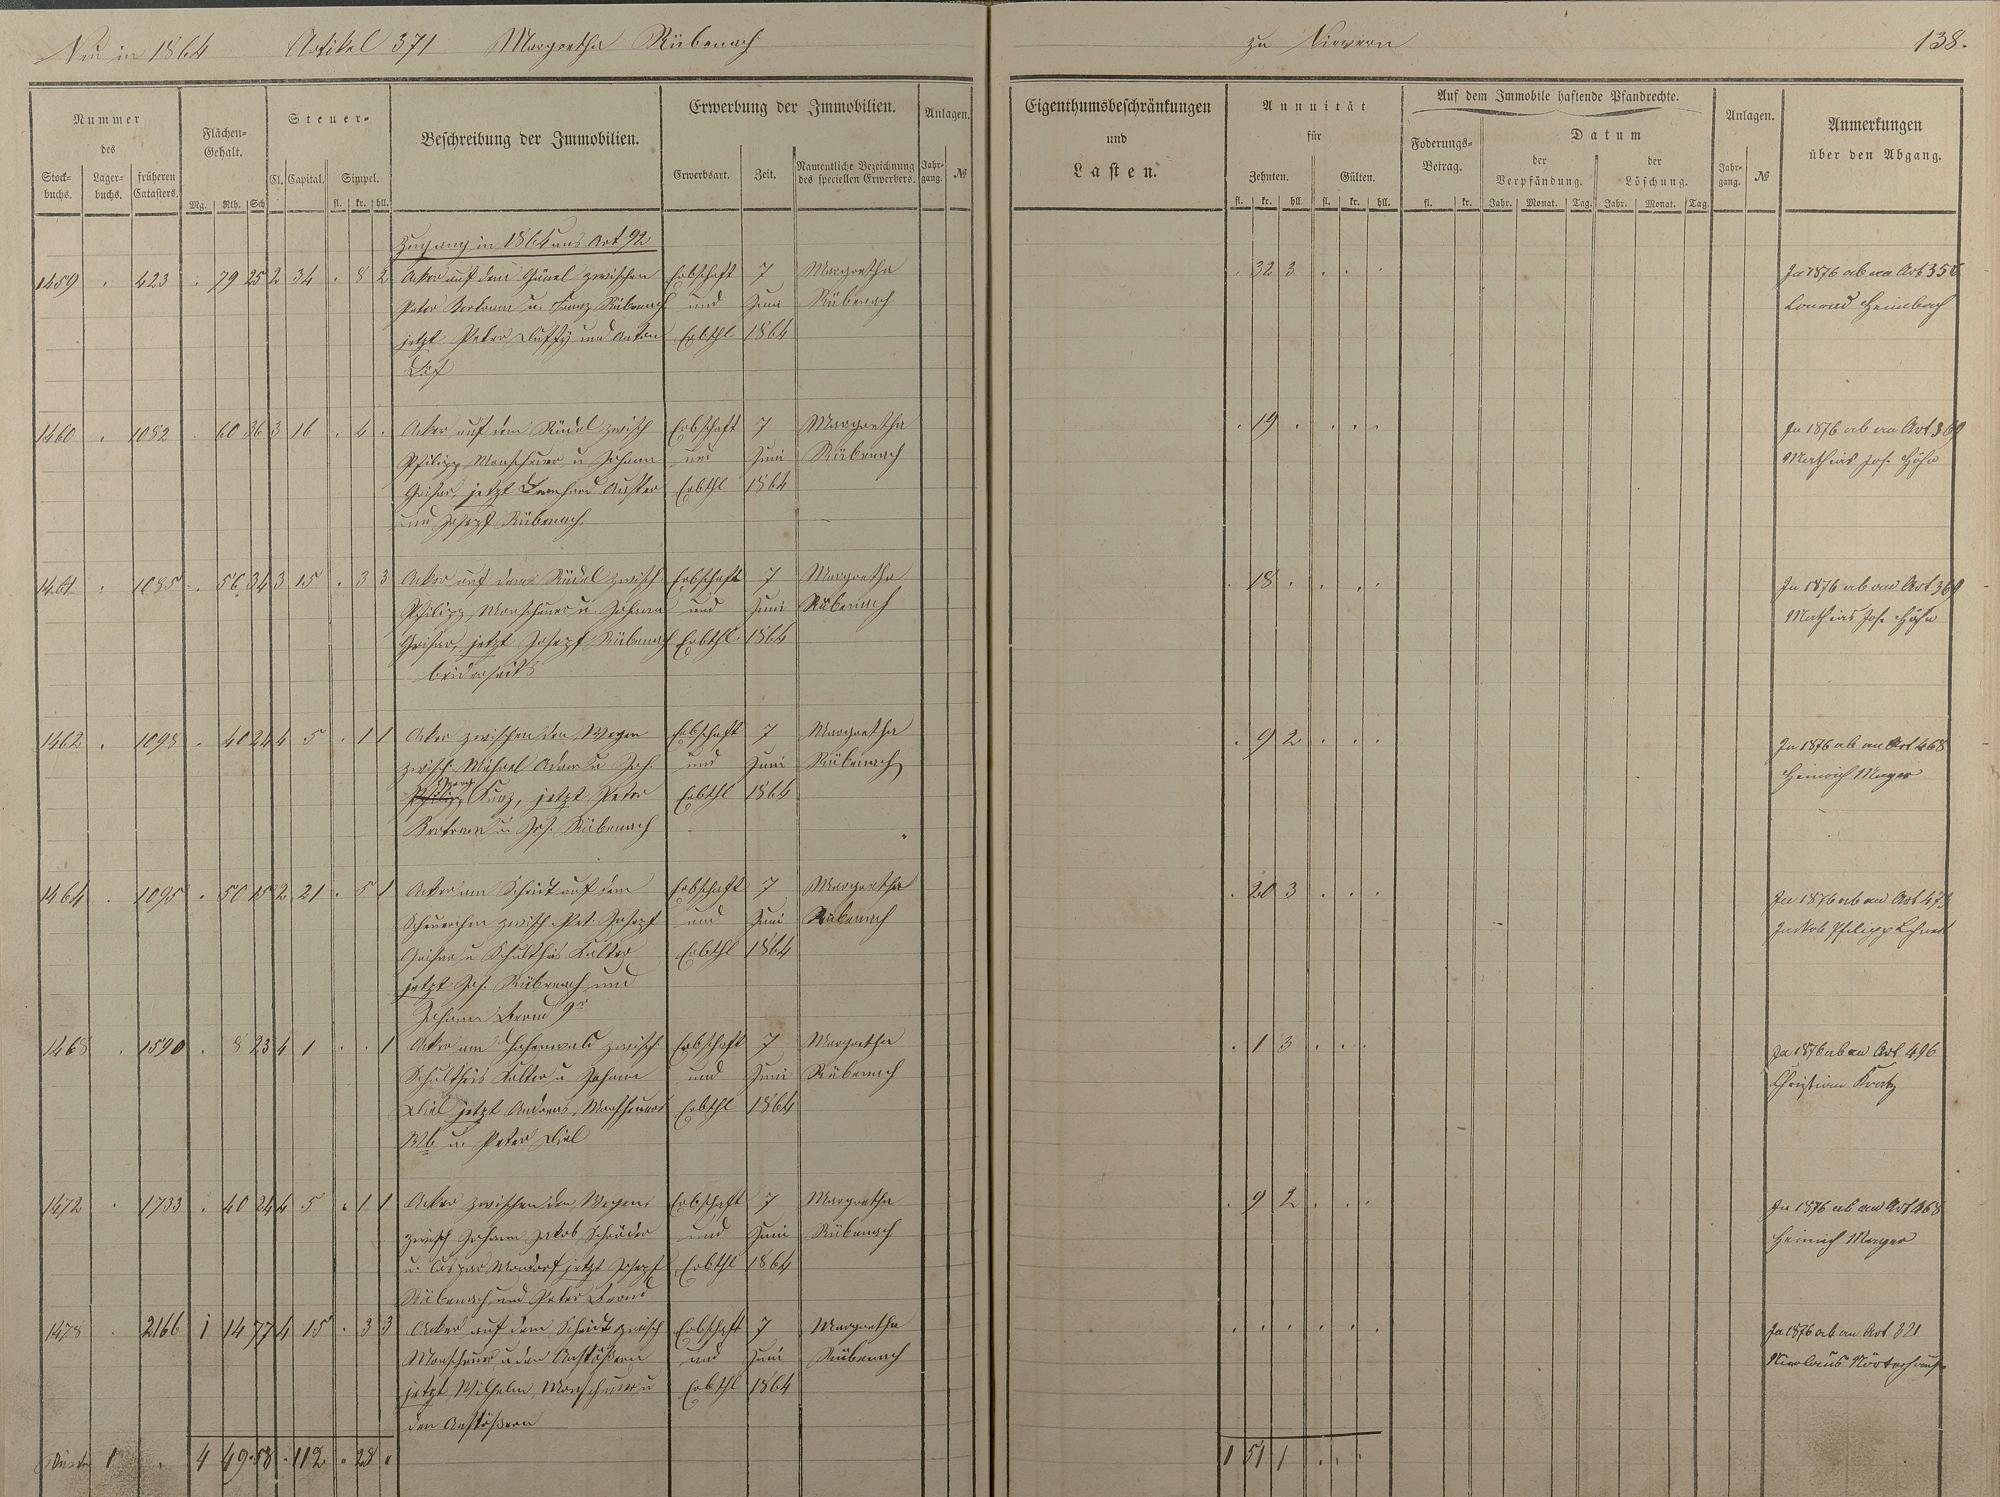 Neu in 1864 Artikel 371 Margretha Rübenach
zu Nievern 138.
Nummer des
Stock-buchs. Lager-buchs. früheren Catasters.
Flächen-Gehalt.
Mg. Rth. Sch
Steuer-
Cl. Capital. Simpel.
fl. kr. hll.
Beschreibung der Immobilien.
Erwerbung der Immobilien.
Erwerbsart. Zeit. Namentliche Bezeichnung des speciellen Erwerbers.
Anlagen.
Jahr-gang. №
Eigenthumsbeschränkungen
und
Lasten.
Annuität
für
Zehnten. Gülten.
fl. kr. hll. fl. kr. hll.
Auf dem Immobile haftende Pfandrechte.
Foderungs-Betrag.
fl. kr.
Datum
der Verpfändung. der Löschung.
Jahr. Monat. Tag. Jahr. Monat. Tag.
Anlagen.
Jahr-gang. №
Anmerkungen
über den Abgang.
Zugang in 1864 aus Art 92
1459 . 423 . 79 25 2 34 . 8 2 Acker auf dem zwischen Erbschaft 7 Margretha . 32 3 . . . In 1876 ab an Art 356
Peter Bertram u. Rübenach und Juni Rübenach Heimbach
jetzt Peter und Anton Erbthl 1864
1460 . 1082 . 60 36 3 16 . 4 . Acker auf dem Rüdel zwisch Erbschaft 7 Margretha . 19 . . . . In 1876 ab an Art 369
Philipp Monschauer u Johann und Juni Rübenach Mathias Jos. Höhn
Geisar, jetzt Erbthl 1864
und Joseph Rübenach
1461 . 1085 . 56 34 3 15 . 3 3 Acker auf dem Rüdel zwisch Erbschaft 7 Margretha . 18 . . . . In 1876 ab an Art 369
Philipp Monschauer u Johann und Juni Rübenach Mathias Jos. Höhn
Geisar, jetzt Joseph Rübenach Erbthl. 1864
beiderseits
1462 . 1093 . 40 24 4 5 . 1 1 Acker zwischen den Wegen Erbschaft 7 Margretha . 9 2 . . . In 1876 ab an Art 468
zwisch Michael Adam u Joh. und Juni Rübenach Heinrich Mayer
Kunz, jetzt Peter Erbthl 1864
Bertram u Jos. Rübenach
1464 . 1095 . 50 15 2 21 . 5 1 Acker am Scheidt auf dem Erbschaft 7 Margretha . 20 3 . . . In 1876 ab an Art 473
zwisch Pet. Joseph und Juni Rübenach Jackob Philipp
Geisar u Schultheis Kalter Erbthl 1864
jetzt Jos. Rübenach und
Johann
1468 . 1590 . 8 23 4 1 . . 1 Acker am Hohenwald zwisch Erbschaft 7 Margretha . 1 3 . . . In 1876 ab an Art 496
Schultheis Kalter u Johann und Juni Rübenach Christian Kratz
Diel jetzt Andreas Monschauer Erbthl 1864
Wb u. Peter Diel
1472 . 1733 . 40 24 4 5 . 1 1 Acker zwischen den Wegen Erbschaft 7 Margretha . 9 2 . . . In 1876 ab an Art 468
zwisch Johann Jakob Schröder und Juni Rübenach Heinrich Mayer
u. Caspar Mondorf jetzt Joseph Erbthl 1864
Rübenach und Peter
1478 . 2166 1 14 77 4 15 . 3 3 Acker auf dem Scheidt zwisch Erbschaft 7 Margretha . . . . . . In 1876 ab an Art 321
Monschauer u den Anstößern und Juni Rübenach Nicolaus
jetzt Wilhelm Monschauer u Erbthl 1864
den Anstößern
1 . 4 49 58 . 112 . 28 . 1 51 1 . . .